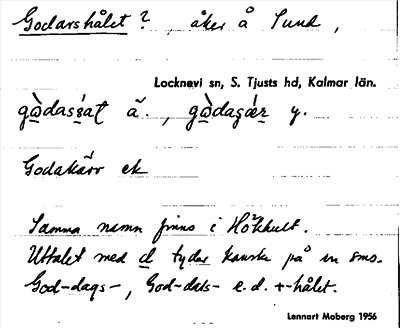 Godarshålet ? , åker å Sund ,
Locknevi sn, S. Tjusts hd, Kalmar län.
ä. , y.
Godakärr ek
Samma namn finns i Hökhult.
Uttalet med d tyder kanske på en sms.
God-dags-, God-dals- e.d. +-hålet.
Lennart Moberg 1956